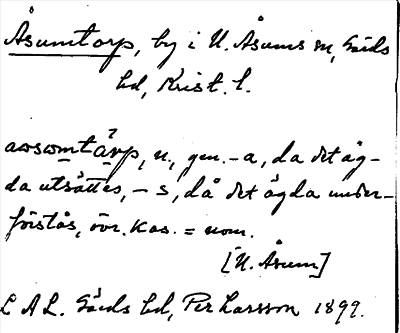 Åsumtorp, by i N. Åsums sn, Gärds
hd, Krist. l.
n., gen. -a, då det äg-
da utsättes, -s, då det ägda under-
förstås, övr. kas. = nom.
[N. Åsum]
L A L. Gärds hd, Per Larsson 1899.